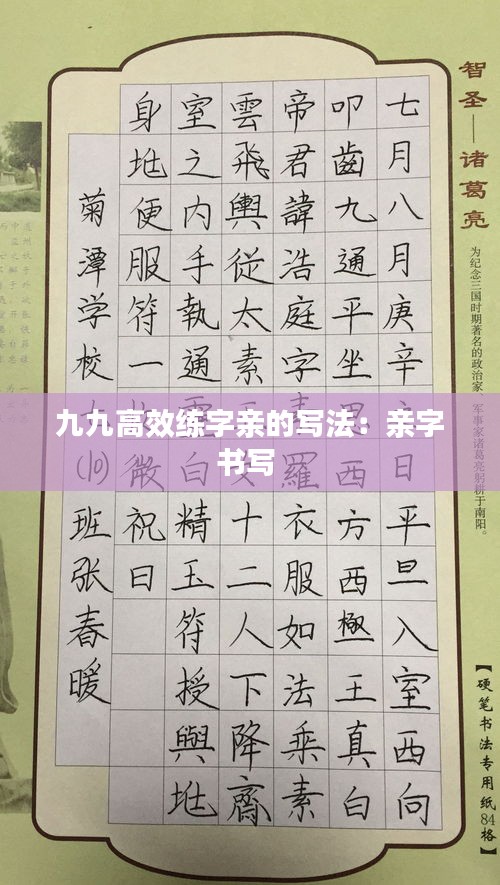 智圣——诸葛亮
为纪念三国时期著名的政治家、军事家诸葛亮躬耕于南阳。
七月八月庚辛日平旦入室西向
叩齒九通平坐思西方西極王真白
帝君諱浩庭字羅衣服如法乘素
雲飛輿從太素女十二人下降齎
室之内手執通白精玉符授與
身便服符一微祝曰
菊潭学校
(10)班张春暖
九九高效练字亲的写法：亲字
书写
【硬笔书法专用纸84格】